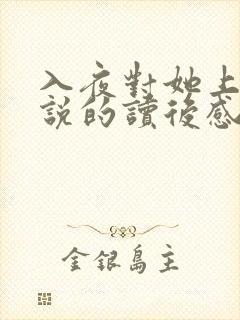 入夜對她上
說的讀後感
金銀島主